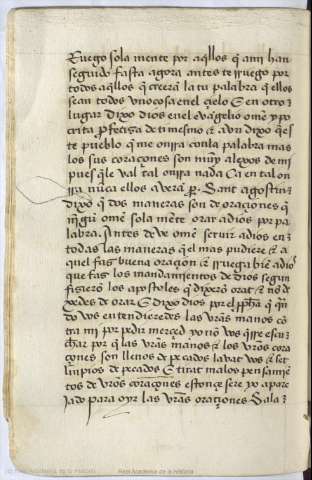 Ruego sola mente por aq̃llos q̃ ami han
seguido fasta agora antes te rruego por
todos aq̃llos q̃ creerã la tu palabra q̃ ellos
sean todos vno cosa enel çielo E en otro
lugar dixo dios enel euãgelio ome ypo
crita
te pueblo q̃ me onrra conla palabra mas
los sus coraçones son muy alexos de mi
pues que val tal onrra nada Ca en tal on
rra nũca ellos auerã Sant agostin
dixo q̃ dos maneras son de oraçiones q̃
ome sola mẽte orar adios por pa
labra. Antes deue ome seruir adios en
todas las maneras q̃ el mas pudiere & a
quel faz buena oraçion & rruega biẽ adios
que faz los mandamientos de dios segun
fizierõ los apostoles q̃ dixerõ
de orar E dixo dios por el q̃
do vos entendieredes las vr̃as manos cõ
tra mi por pedir merçed yo nõ vos
char por q̃ las vr̃as manos & los vr̃os cora
çones son llenos de pecados lauat vos & set
linpios de pecados E tirat malos pensamiẽ
tos de vr̃os coraçones estonçe sere yo apare
jado para oyr las vr̃as oraçiones Sala
Real Academia de la Historia